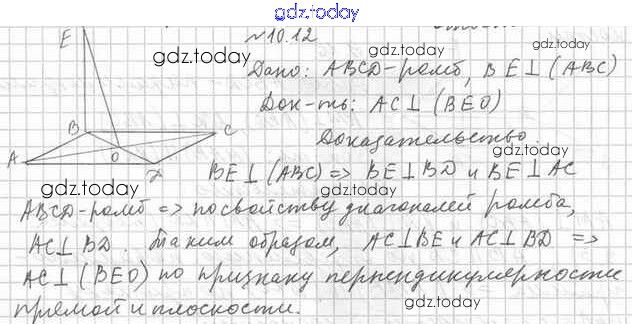 gdz.today
№10.12
E
gdz.today
gdz.today
gdz.today
Дано: ABCD-ромб, BE⊥(ABC)
Док-ть: AC⊥(BEO)
gdz.today
B
C
Доказательство
gdz.today
A
O
D
BE⊥(ABC) => BE⊥BD и BE⊥AC
gdz.today
gdz.today
ABCD-ромб => по свойству диагоналей ромба,
AC⊥BD. Таким образом, AC⊥BE и AC⊥BD =>
gdz.today
gdz.today
AC⊥(BEO) по признаку перпендикулярности
прямой и плоскости.
gdz.today
gdz.today